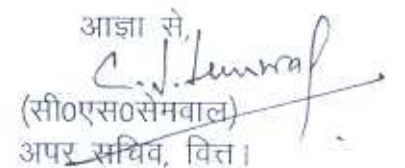 आज्ञा से,
C. S. Semwal
(सी0एस0सेमवाल)
अपर सचिव, वित्त।